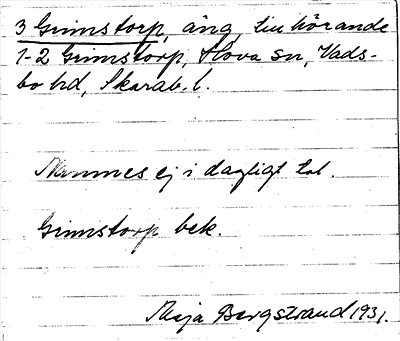 3 Grimstorp, äng, tillhörande
1-2 Grimstorp, Hova sn, Vads-
bo hd, Skarab. l.
Namnes ej i dagligt tal.
Grimstorp bek.
Maja Bergstrand 1931.